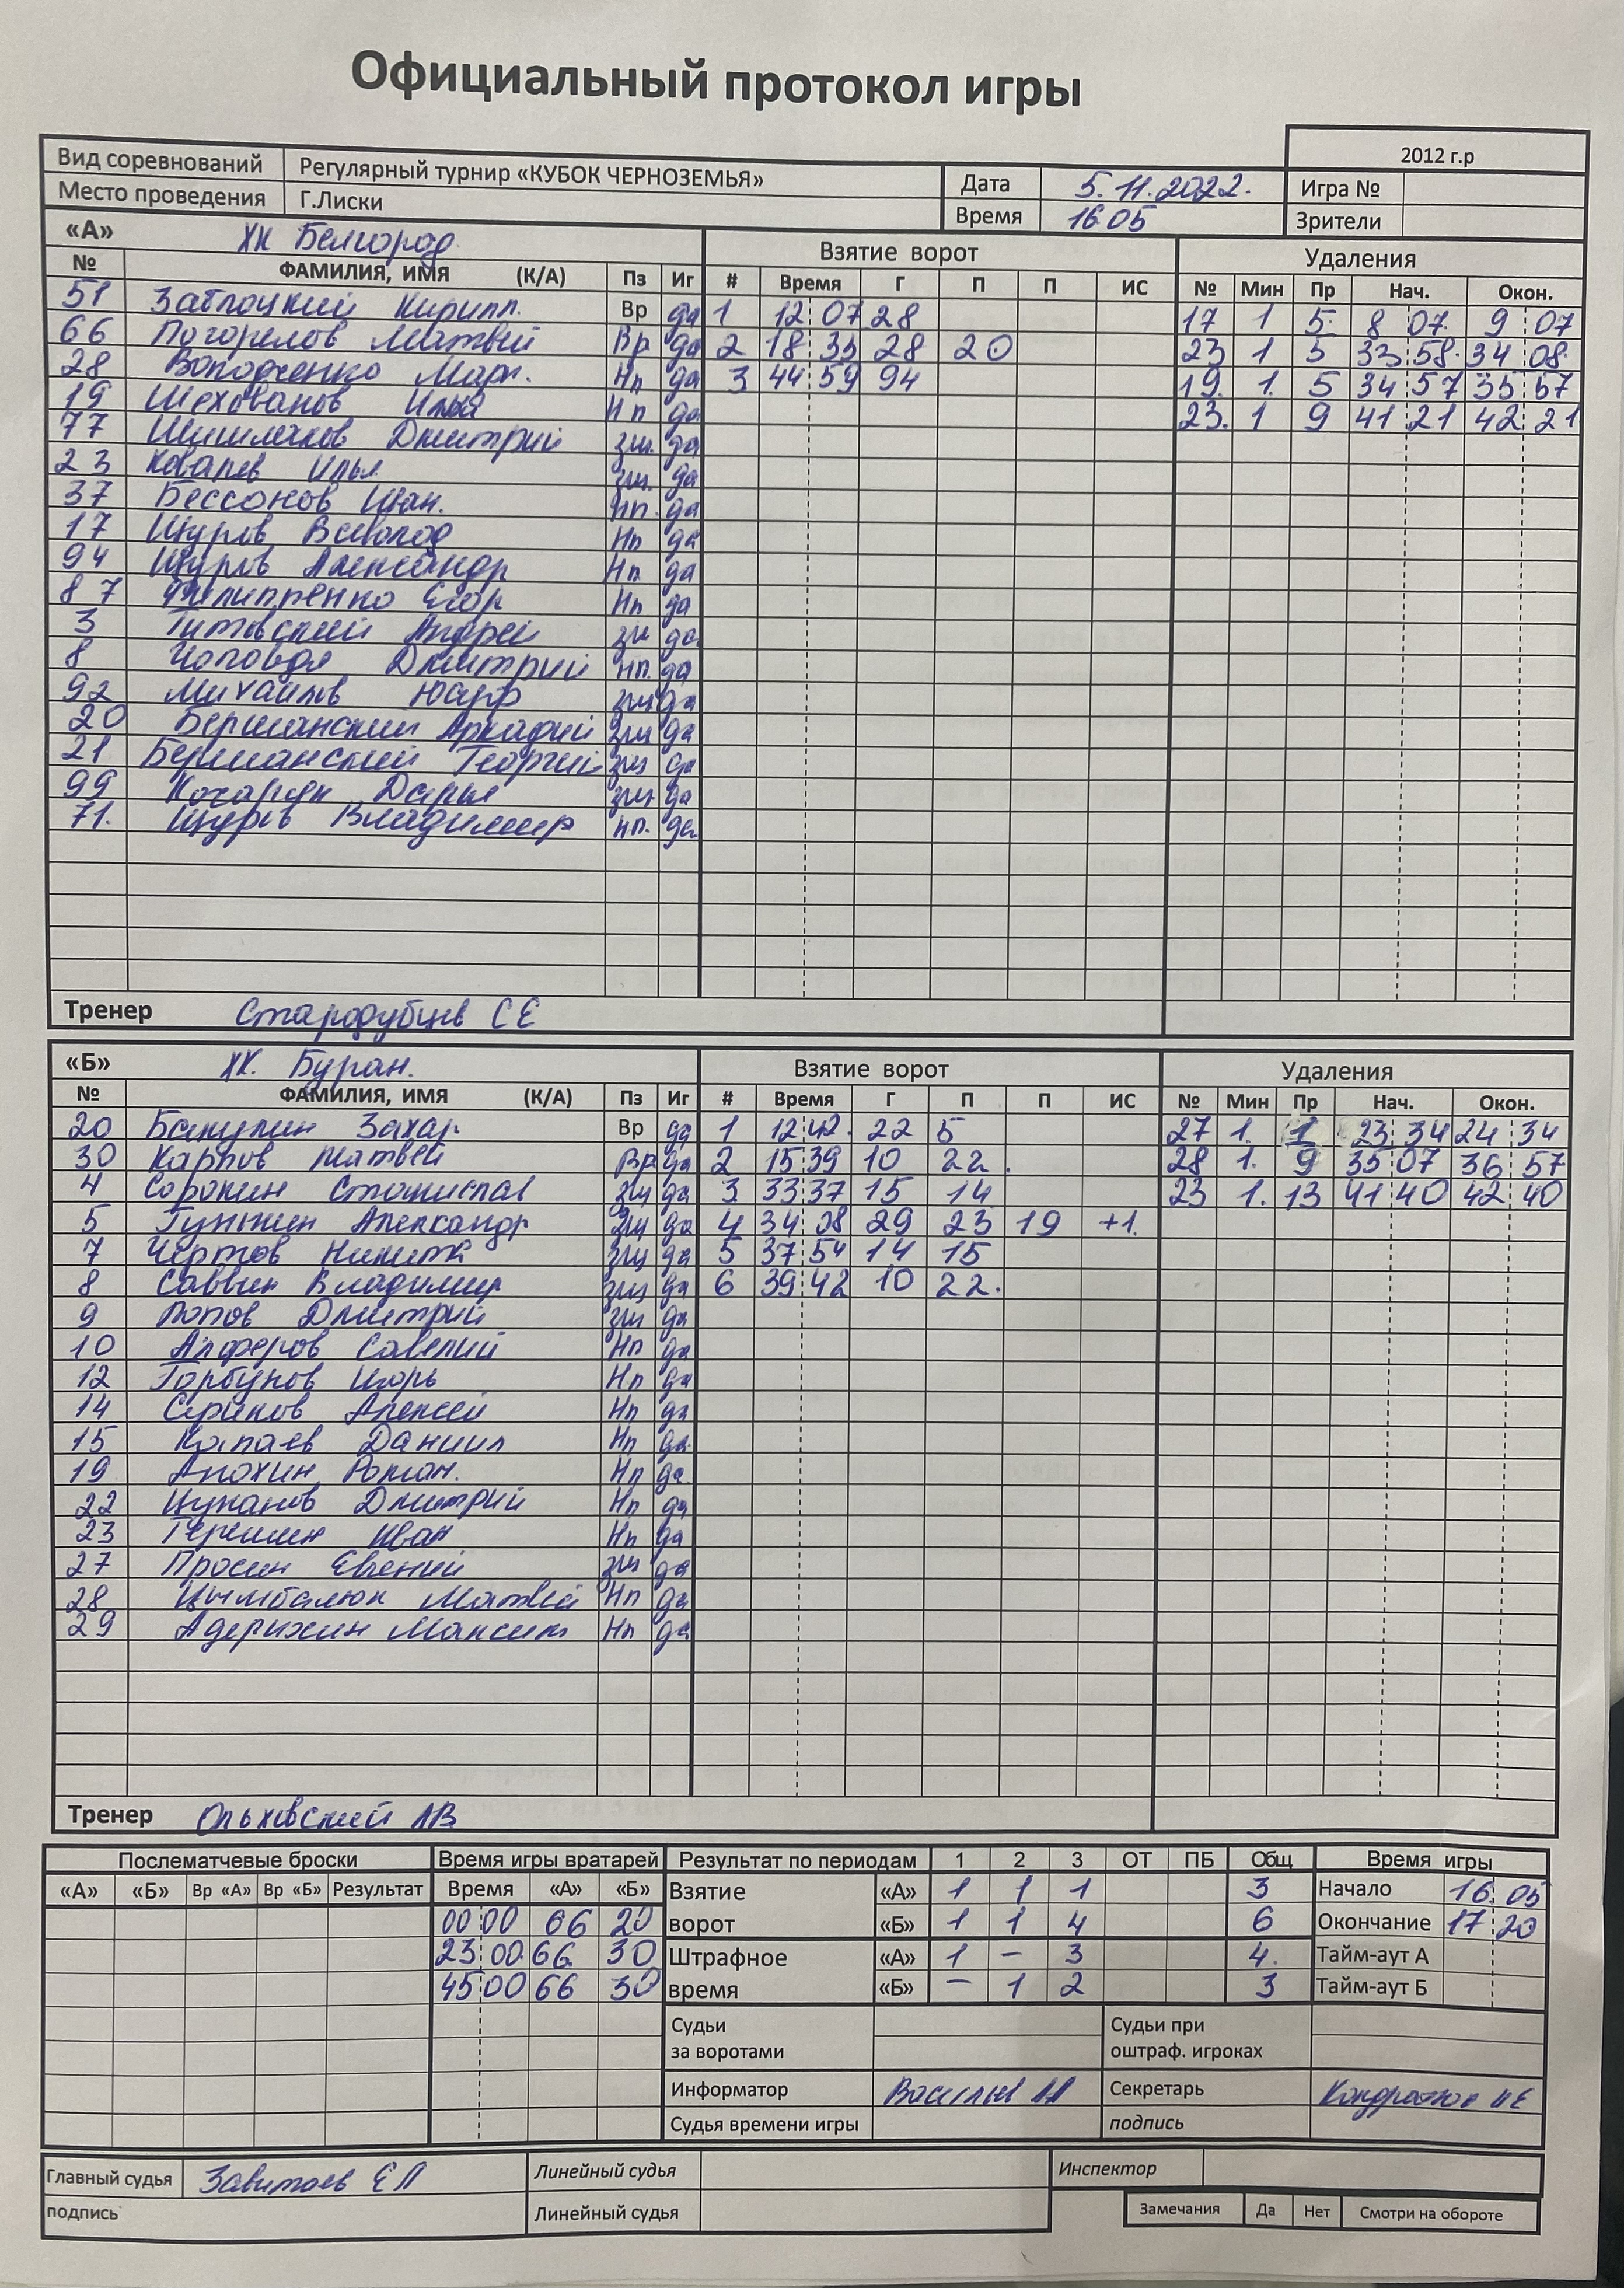 Официальный протокол игры
2012 г.р
Вид соревнований Регулярный турнир «КУБОК ЧЕРНОЗЕМЬЯ» Дата 5.11.2022. Игра №
Место проведения Г.Лиски Время 16 05 Зрители
«А» ХК Белгород Взятие ворот Удаления
№ ФАМИЛИЯ, ИМЯ (К/А) Пз Иг # Время Г П П ИС № Мин Пр Нач. Окон.
51 Заблоцкий Кирилл. Вр да 1 12 07 28 17 1 5 8 07 9 07
66 Погорелов Матвей Вр да 2 18 35 28 20 23 1 5 33 58 34 08
28 Володченко Марк. Нп да 3 44 59 94 19. 1. 5 34 57 35 57
19 Шехованов Илья Нп да 23. 1 9 41 21 42 21
77 Шишлаков Дмитрий зщ. да
23 Ковалев Илья зщ. да
37 Бессонов Иван. нп. да
17 Щуров Всеволод Нп да
94 Щуров Александр Нп да
87 Филиппенко Егор Нп да
3 Титовский Андрей зщ да
8 Дмитрий нп. да
92 Михайлов зщ да
20 Бершанский Аркадий зщ да
21 Бершанский Георгий зщ да
99 Кочарян Дарья зщ да
71. Щуров Владимир нп. да
Тренер Стародубцев С Е
«Б» ХК. Буран. Взятие ворот Удаления
№ ФАМИЛИЯ, ИМЯ (К/А) Пз Иг # Время Г П П ИС № Мин Пр Нач. Окон.
20 Бакулин Захар. Вр да 1 12 42. 22 5 27 1. 1 23 34 24 34
30 Карпов Матвей Вр да 2 15 39 10 22. 28 1. 9 35 07 36 57
4 Сорокин Станислав зщ да 3 33 37 15 14 23 1. 13 41 40 42 40
5 Гунькин Александр зщ да 4 34 08 29 23 19 +1.
7 Чертов Никита зщ да 5 37 54 14 15
8 Саввин Владимир зщ да 6 39 42 10 22.
9 Попов Дмитрий зщ да
10 Алферов Савелий Нп да
12 Горбунов Игорь Нп да
14 Алексей Нп да
15 Капаев Даниил Нп да
19 Анохин Роман. Нп да
22 Цуканов Дмитрий Нп да
23 Иван Нп да
27 Просин Евгений зщ да
28 Цымбалюк Матвей Нп да
29 Адерихин Максим Нп да
Тренер Ольховский АВ
Послематчевые броски Время игры вратарей Результат по периодам 1 2 3 ОТ ПБ Общ Время игры
«А» «Б» Вр «А» Вр «Б» Результат Время «А» «Б» Взятие «А» 1 1 1 3 Начало 16 05
00 00 66 20 ворот «Б» 1 1 4 6 Окончание 17 20
23 00 66 30 Штрафное «А» 1 – 3 4. Тайм-аут А
45 00 66 30 время «Б» – 1 2 3 Тайм-аут Б
Судьи Судьи при
за воротами оштраф. игроках
Информатор Секретарь
Судья времени игры подпись
Главный судья Линейный судья Инспектор
подпись Линейный судья Замечания Да Нет Смотри на обороте